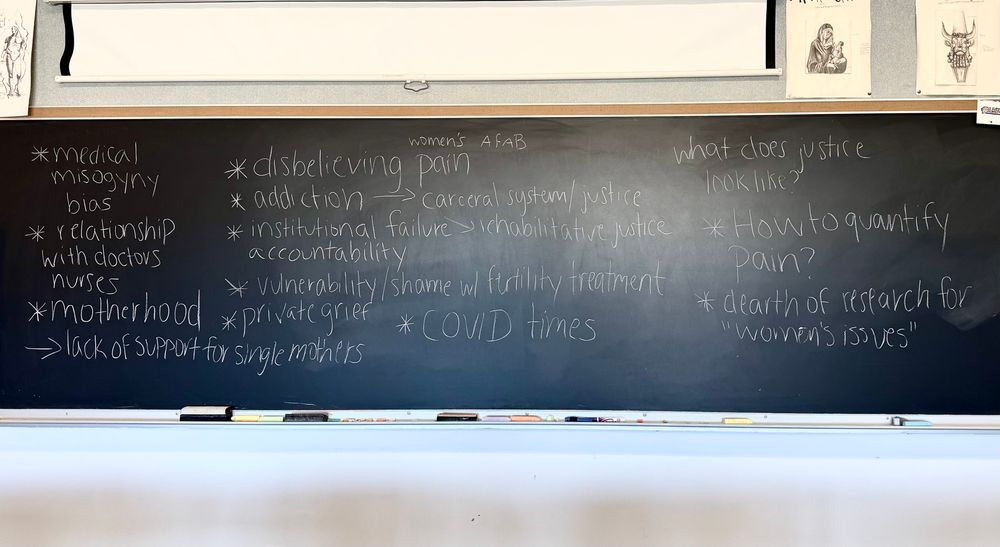 * medical
misogyny
bias
* relationship
with doctors
nurses
* motherhood
→ lack of support for single mothers
women's AFAB
* disbelieving pain
* addiction → carceral system/justice
* institutional failure > rehabilitative justice
accountability
* vulnerability/shame w/ fertility treatment
* private grief
* COVID times
what does justice
look like?
* How to quantify
Pain?
* dearth of research for
"women's issues"